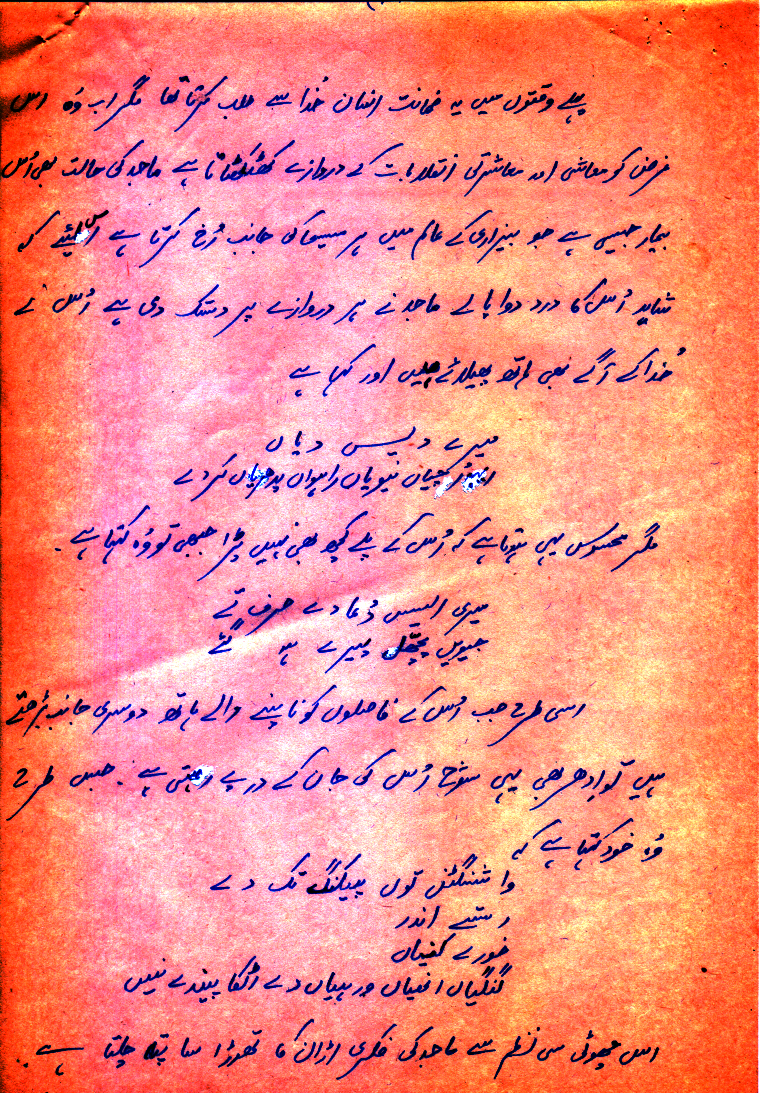 پہلے وقتوں میں یہ ضمانت انسان خُدا سے طلب کرتا تھا مگر اب وُہ اس
غرض کو معاشی اور معاشرتی انقلابات کے دروازے کھٹکھٹاتا ہے ماجد کی حالت بھی اُس
بیمار جیسی ہے جو بیزاری کے عالم میں ہر مسیحا کی جانب رُخ کرتا ہے اس لئیے کہ
شاید اُس کا درد دوا پا لے ماجد نے ہر دروازے پر دستک دی ہے اُس نے
خُدا کے آگے بھی ہاتھ پھیلائے ہیں اور کہا ہے
میرے دیس دیاں
اچیاں نیویاں راہواں پدھریاں کر دے
مگر محسوس یہی ہوتا ہے کہ اُس کے پلے کچھ بھی نہیں پڑا جبھی تو وُہ کہتا ہے ۔
میری ایس دُعا دے حرف تے
جیویں پتھّل میرے ہو گئے
اسی طرح جب اُس کے فاصلوں کو ناپنے والے ہاتھ دوسری جانب بڑھتے
ہیں تو اِدھر بھی یہی سوچ اُس کی جاں کے درپے رہتی ہے ۔ جس طرح
وُہ خود کہتا ہے کہ
واشنگٹن توں پیکنگ تک دے
رستے اندر
خورے کنیاں
گنگیاں انھیاں ورہیاں دے پینڈے نیں
اس چھوٹی سی نظم سے ماجد کی فکری اڑان کا تھوڑا سا پتہ چلتا ہے ۔